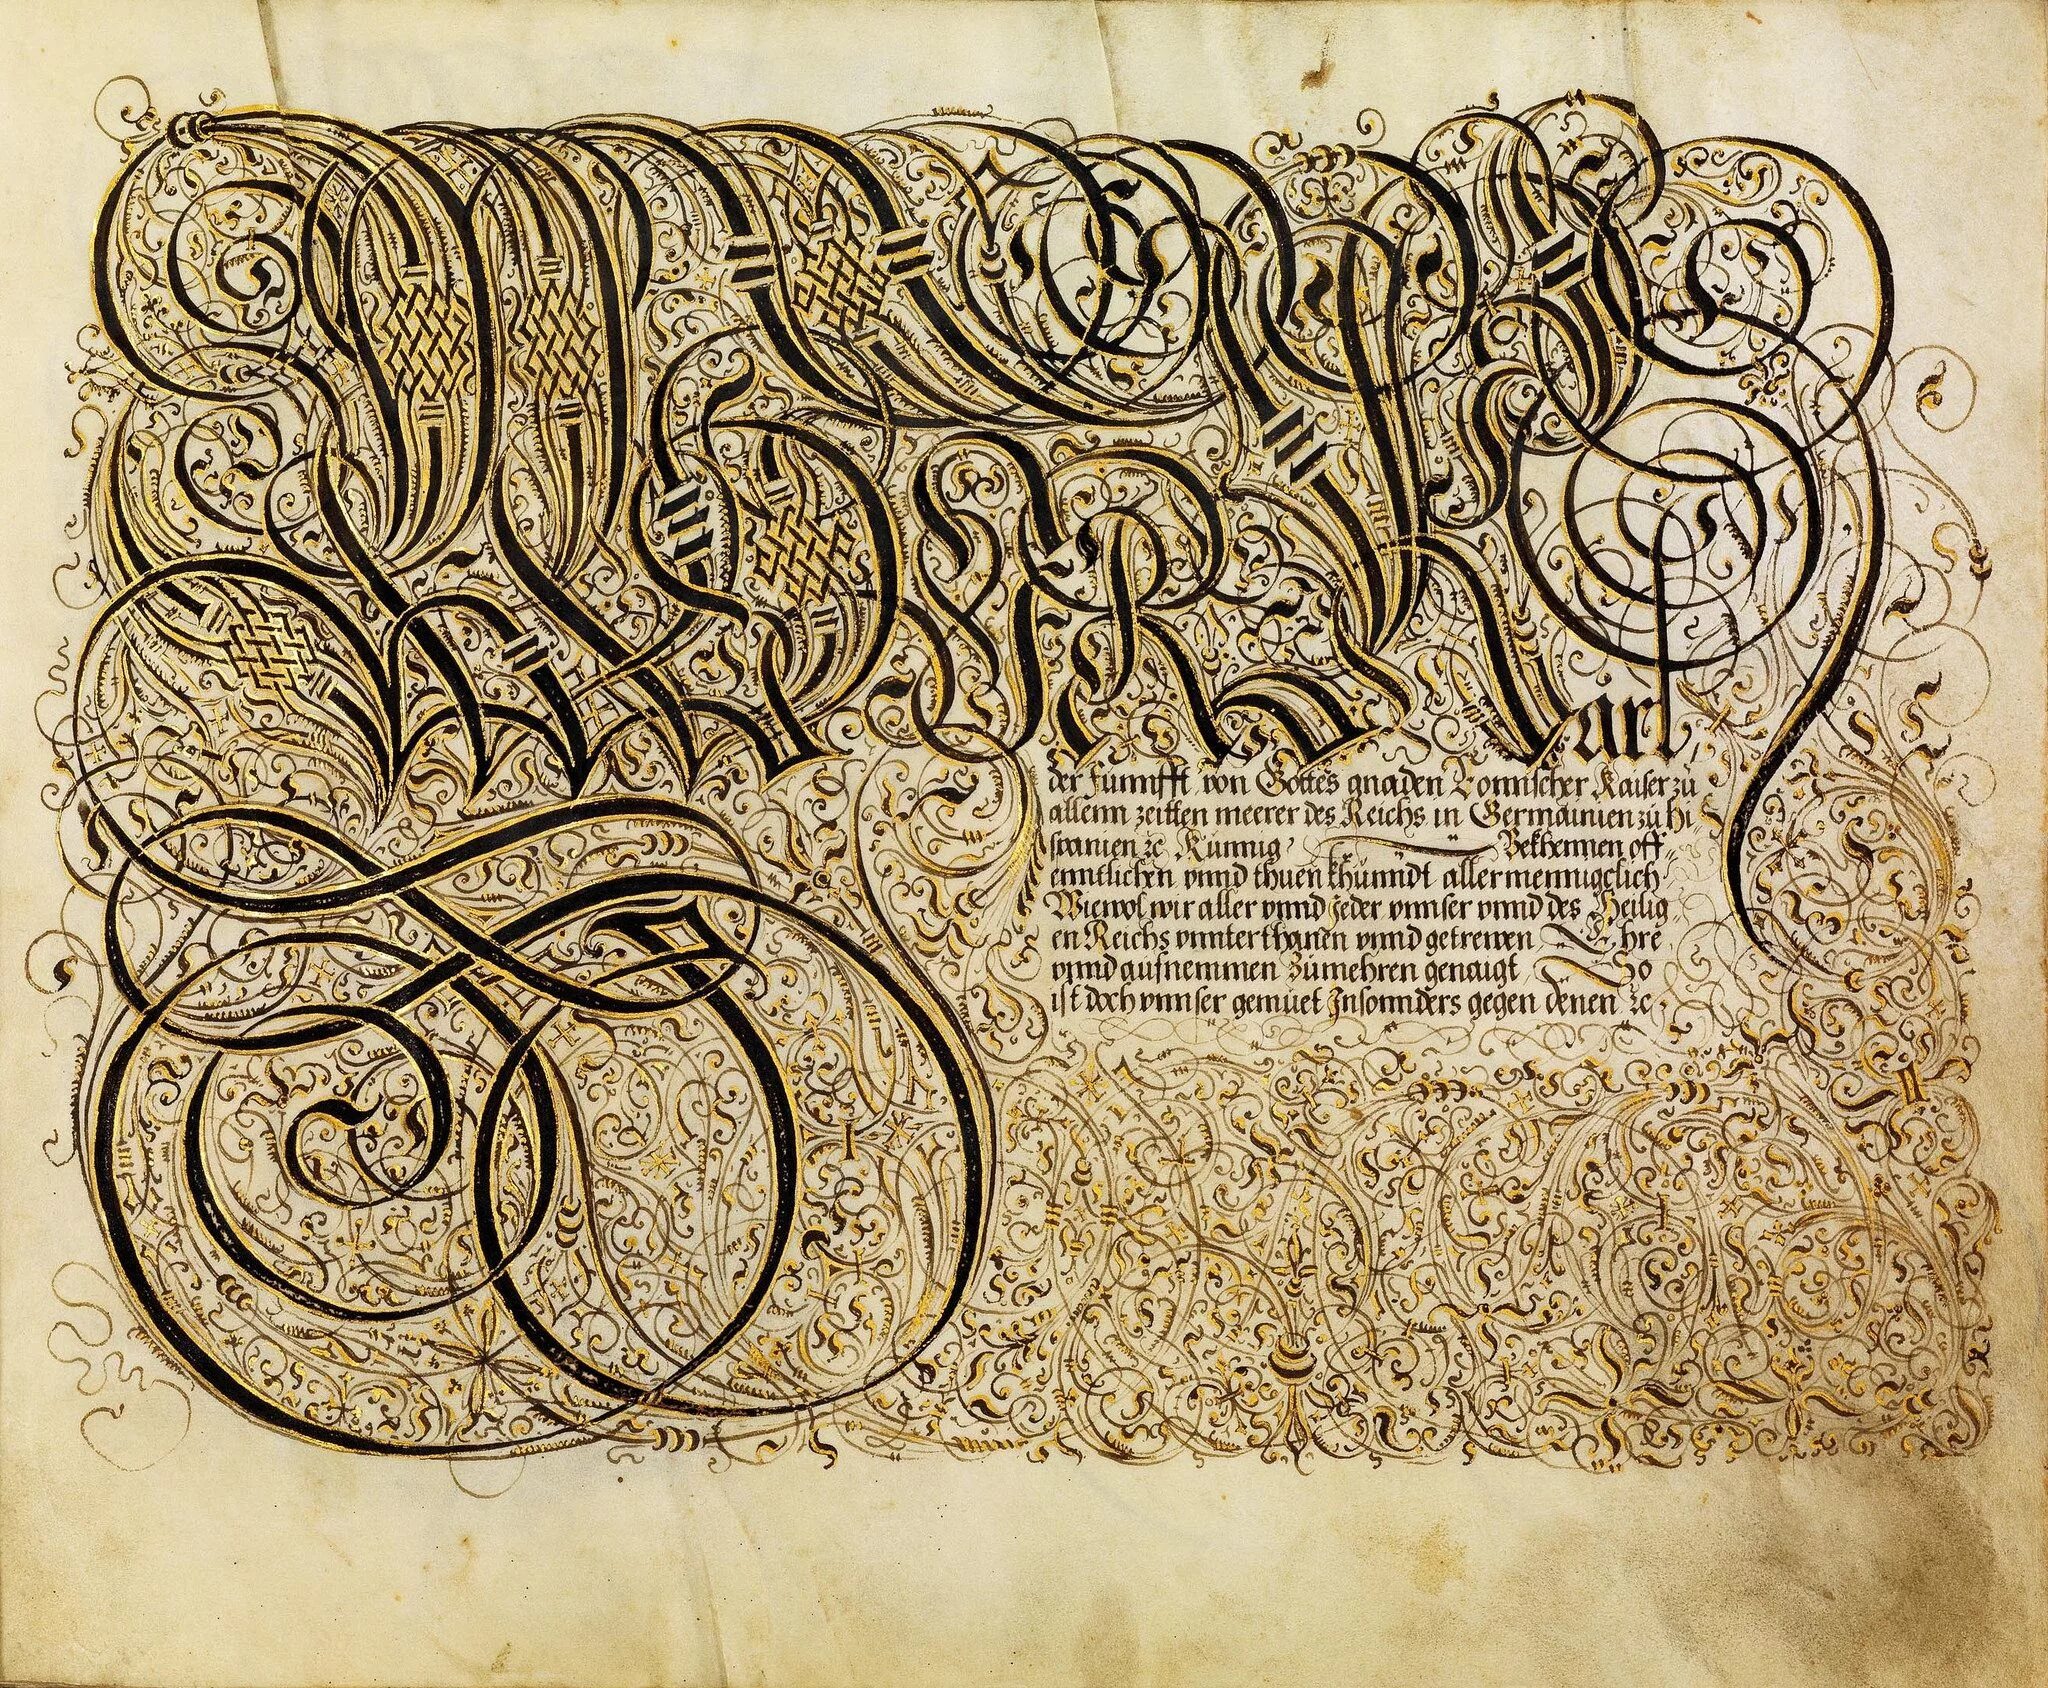 Wir Karl
der Funnfft von Gottes gnaden Romischer Kaiser zu
allenn zeitten meerer des Reichs in Germainien zu hi-
spanien ꝛc Kunnig ⁓ Bekhennen off-
enntlichen vnnd thuen khundt allermennigclich
Wiewol wir aller vnnd jeder vnnser vnnd des Heilig-
en Reichs vnnterthanen vnnd getrewen Ehre
vnnd aufnemmen zumehren genaigt So
ist doch vnnser gemuet Jnsonnders gegen denen ꝛc